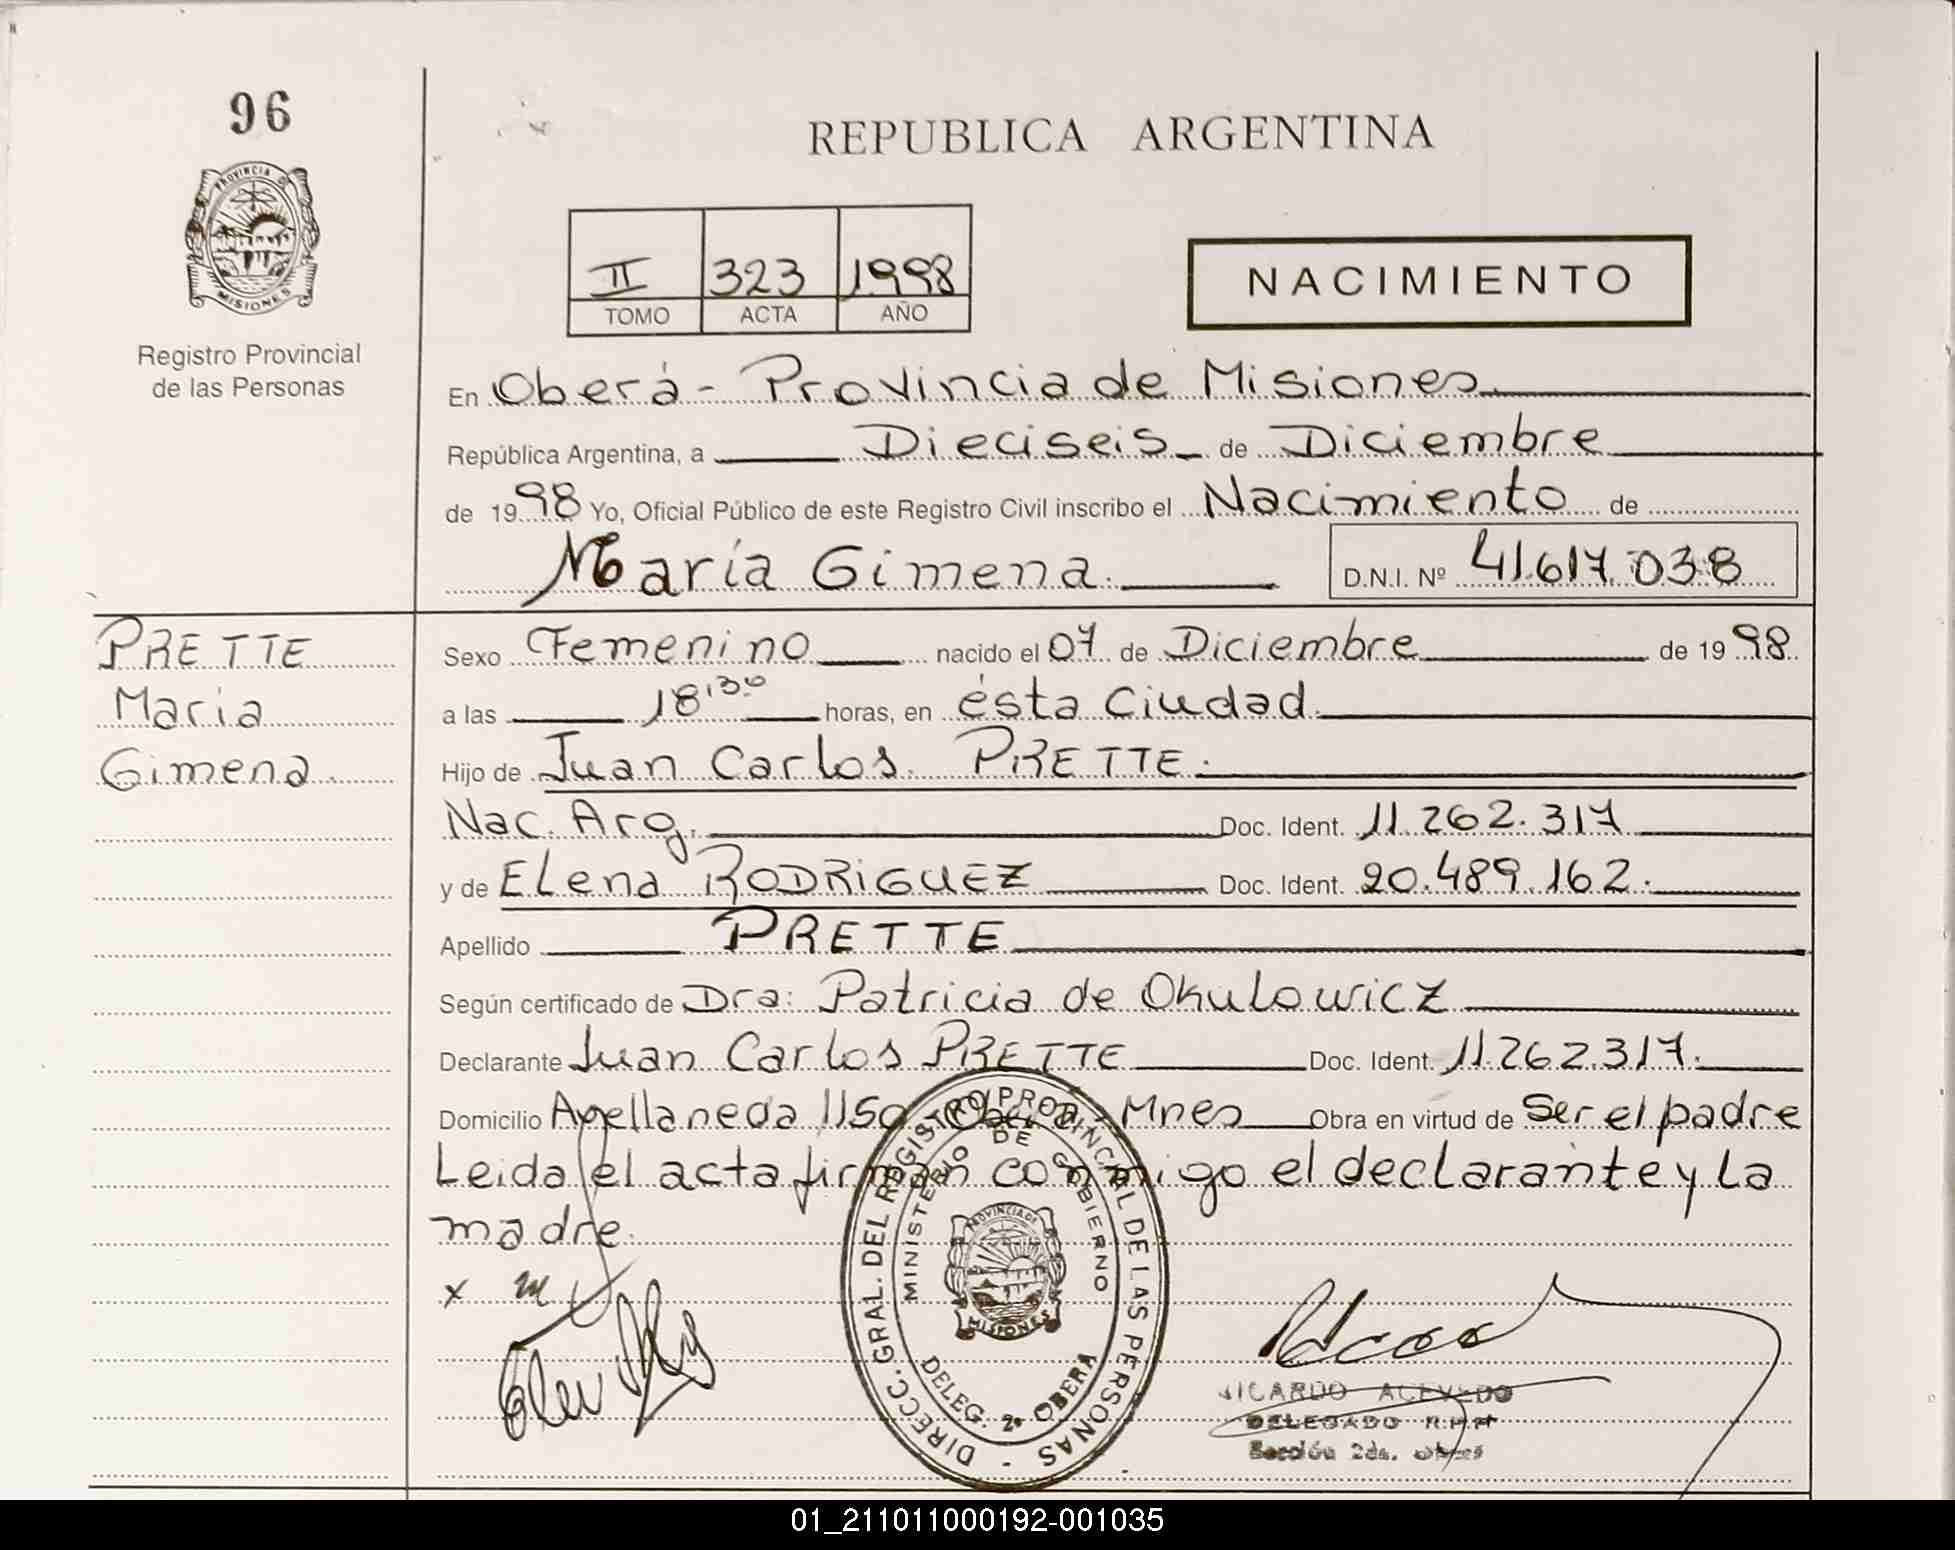 96
PROVINCIA DE
MISIONES
Registro Provincial
de las Personas
REPUBLICA ARGENTINA
II 323 1998
TOMO ACTA AÑO
NACIMIENTO
En Oberá - Provincia de Misiones
República Argentina, a Dieciseis de Diciembre
de 1998 Yo, Oficial Público de este Registro Civil inscribo el Nacimiento de
María Gimena. D.N.I. Nº 41.617.038
PRETTE
Maria
Gimena.
Sexo Femenino nacido el 07 de Diciembre de 1998
a las 18,30 horas, en ésta Ciudad.
Hijo de Juan Carlos PRETTE.
Nac. Arg. Doc. Ident. 11.262.317
y de Elena RODRIGUEZ Doc. Ident. 20.489.162.
Apellido PRETTE
Según certificado de Dra: Patricia de Okulowicz
Declarante Juan Carlos PRETTE Doc. Ident. 11.262.317.
Domicilio Avellaneda 1150 - Oberá - Mnes Obra en virtud de Ser el padre
Leida el acta firman conmigo el declarante y la
madre.
DIRECC. GRAL. DEL REGISTRO PROVINCIAL DE LAS PERSONAS -
MINISTERIO DE GOBIERNO
PROVINCIA DE
MISIONES
DELEG. 2ª OBERA
RICARDO ACEVEDO
DELEGADO
Sección 2da.
01_211011000192-001035